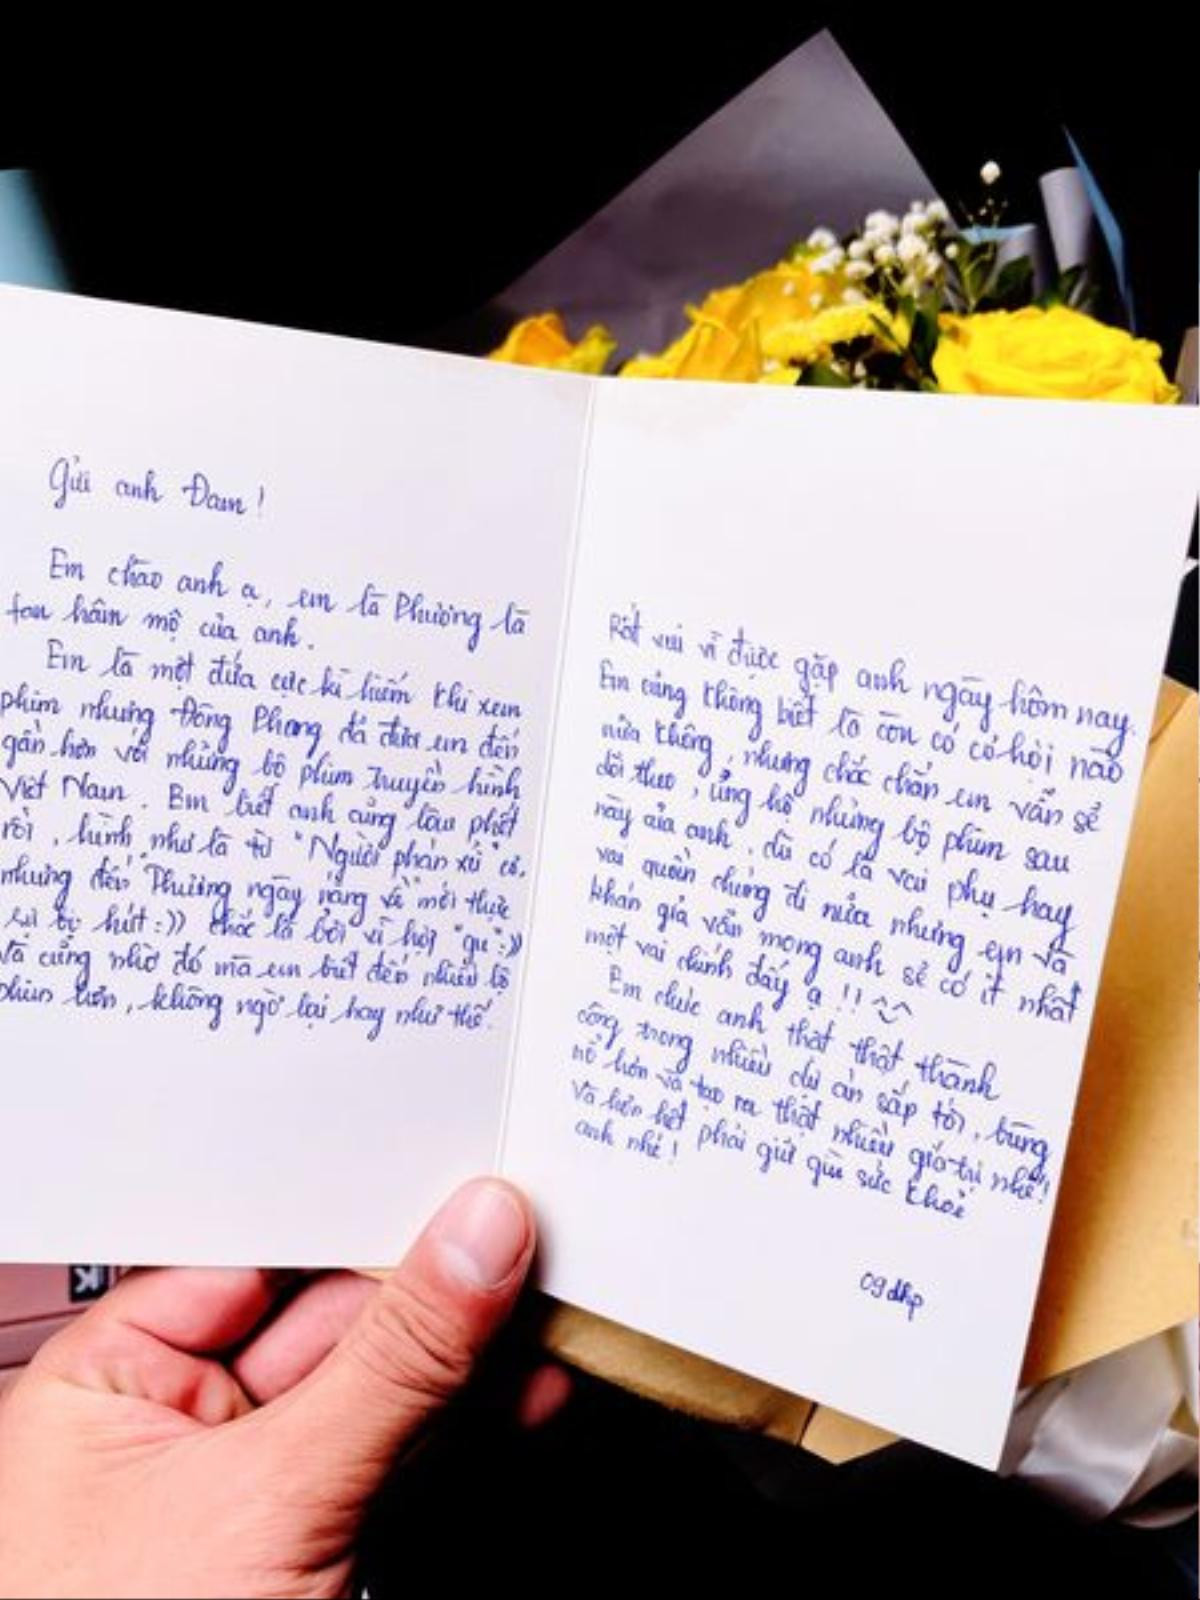 Gửi anh Đam!
Em chào anh ạ, em là Phương là
fan hâm mộ của anh.
Em là một đứa cực kì hiếm khi xem
phim nhưng Đông Phong đã đưa em đến
gần hơn với những bộ phim truyền hình
Việt Nam. Em biết anh cũng lâu phết
rồi, hình như là từ "Người phán xử" cơ,
nhưng đến "Thương ngày nắng về" mới thực
sự bị hút :)) chắc là bởi vì hợp "gu" :))
Và cũng nhờ đó mà em biết đến nhiều bộ
phim hơn, không ngờ lại hay như thế.
Rất vui vì được gặp anh ngày hôm nay.
Em cũng không biết là còn có cơ hội nào
nữa không, nhưng chắc chắn em vẫn sẽ
dõi theo, ủng hộ những bộ phim sau
này của anh, dù có là vai phụ hay
vai quần chúng đi nữa nhưng em và
khán giả vẫn mong anh sẽ có ít nhất
một vai chính đấy ạ !! ^^
Em chúc anh thật thật thành
công trong nhiều dự án sắp tới, bùng
nổ hơn và tạo ra thật nhiều giá trị nhé!
Và hơn hết phải giữ gìn sức khoẻ
anh nhé!
09dhp